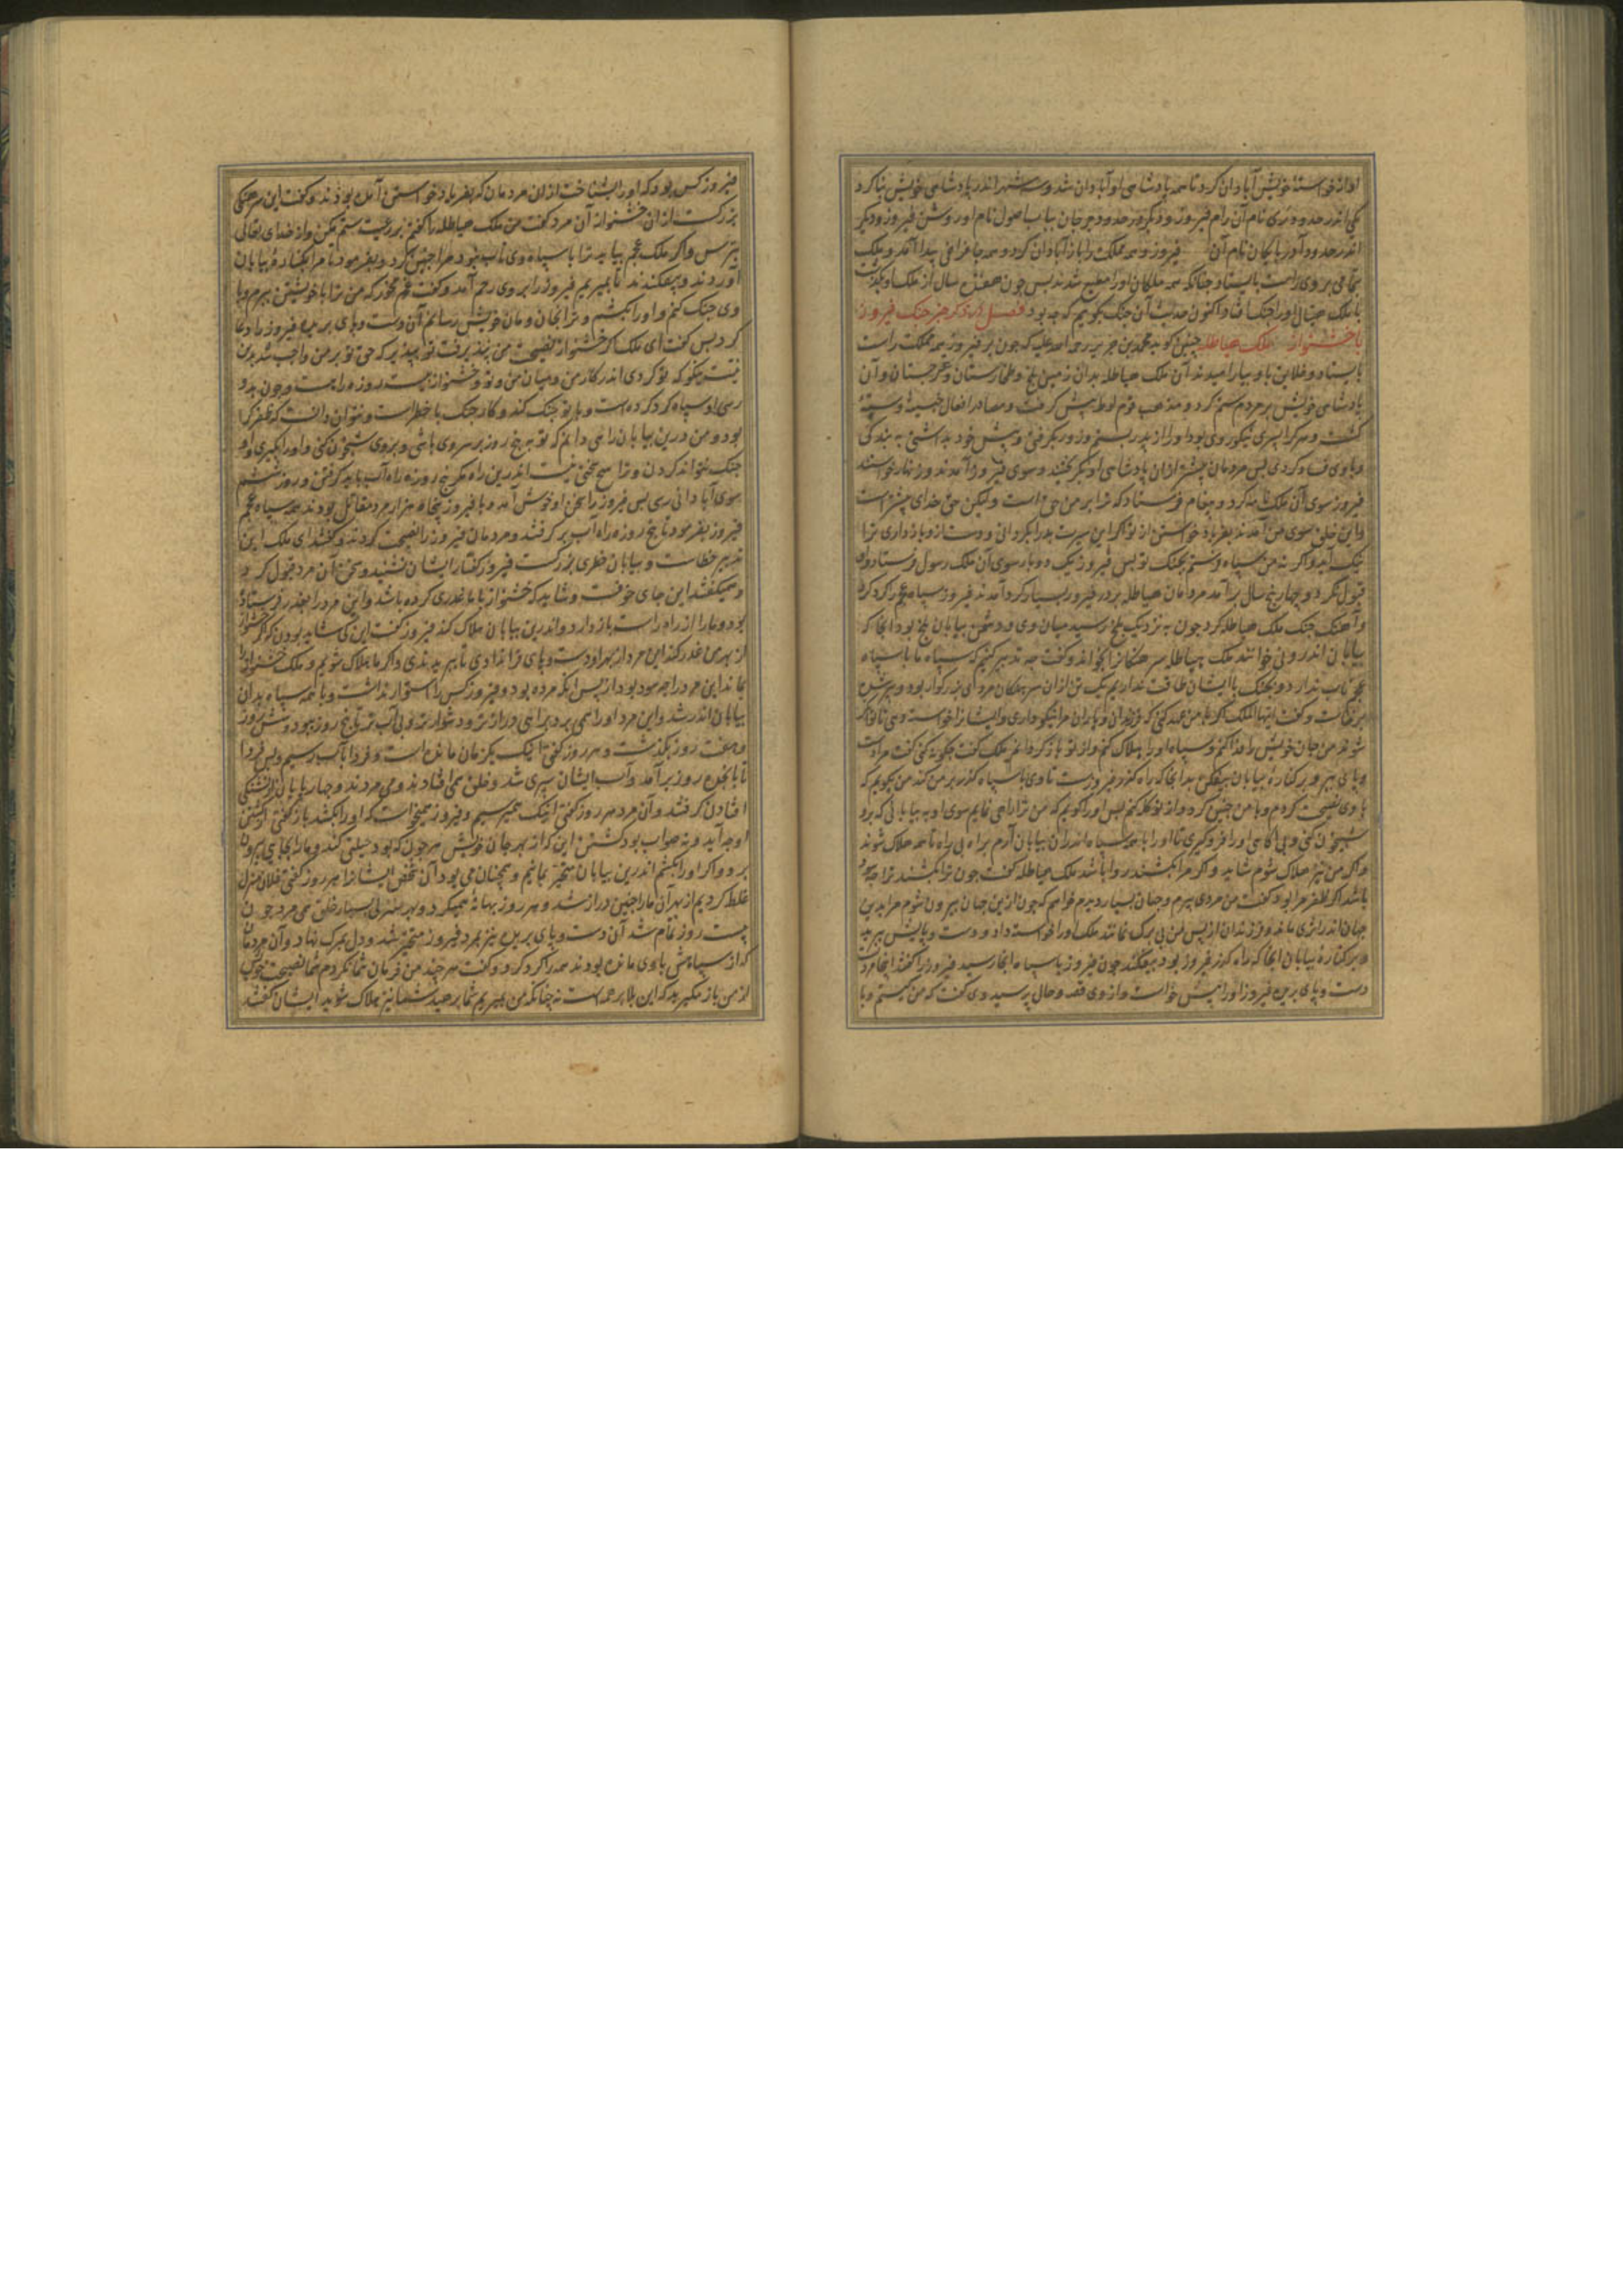 او از خواسته خویش آبادان کرد تا همه پادشاهی او آبادان شد و سه شهر اندر پادشاهی خویش بنا کرد
یکی اندر حدود ری نام آن رام فیروز و دیگر در حدود جرجان بباب اصول نام او روشن فیروز و دیگر
اندر حدود آذربایکان نام آن فیروز و همه مملکت را باز آبادان کرد و همه جا فراخی پیدا آمد و ملک
بتمامی بر وی راست بایستاد چنانکه همه ملکان او را مطیع شدند پس چون هفده سال از ملک او بگذشت
با ملک هیتال او را جنک افتاد اکنون حدیث آن جنک بگویم که چه بود فصل در ذکر خبر جنک فیروز
با خشنواز ملک هیاطله چنین کوید محمد بن جریر رحمة الله علیه که چون بر فیروز همه مملکت راست
بایستاد و خلایق با او بیارامیدند آن ملک هیاطله بدان زمین بلخ و طخارستان و غرجستان و آن
پادشاهی خویش بر مردم ستم کرد و مذهب قوم لوط پیش کرفت و مصادر افعال خبیثه و سیئه
کشت و هر کرا پسری نیکوروی بود او را از پدر بستم و زور بکرفتی و پیش خود بداشتی به بندکی
و با وی فساد کردی پس مردمان بیشتر از ان پادشاهی او بکریختند و سوی فیروز آمدند و زنهار خواستند
فیروز سوی آن ملک نامه کرد و پیغام فرستاد که ترا بر من حق است ولیکن حق خدای بیشتر است
و این خلق سوی من آمدند بفریاد خواستن از تو اکر این سیرت بد را بکردانی و دست از وی بازداری ترا
نیک آید و اکر نه من سپاه فرستم بجنک تو پس فیروز یک دو بار سوی آن ملک رسول فرستاد و او
قبول نکرد و چهار پنج سال برآمد مردمان هیاطله بر در فیروز بسیار کرد آمدند فیروز سپاه عجم را کرد کرد
و آهنک جنک ملک هیاطله کرد چون به نزدیک بلخ رسید میان وی و دشمن بیابان بلخ بود آنجا که
بیابان اندرونی خوانند ملک هیاطله سرهنکانرا بخواند و کفت چه تدبیر کنیم که سپاه ما با سپاه
عجم تاب ندارد و بجنک با ایشان طاقت نداریم یک تن از ان سرهنکان مردی بزرکوار بود و پیر شده
برخاست و کفت ایها الملک اکر با من عهد کنی که فرزندان و یاران مرا نیکو داری و ایشانرا خواسته دهی تا توانکر
شوند من جان خویش را فدا کنم و سپاه او را هلاک کنم و از تو باز کردانم ملک کفت چکونه کنی کفت مرا دست
و پای ببر و بر کناره بیابان بیفکن بدانجا که راه کذر فیروزست تا وی با سپاه کذر بر من کند من بکویم که
با وی نصیحت کردم و با من چنین کرد و از تو کله کنم پس او را کویم که من ترا راهی نمایم سوی او به بیابانی که برو
شبیخون کنی و بی آکاهی او را فروکیری تا او را با همه سپاه اندر ان بیابان آرم براه بی راه تا همه هلاک شوند
و اکر من نیز هلاک شوم شاید و اکر مرا بکشند روا باشد ملک هیاطله کفت چون ترا بکشند ترا چه سود
باشد اکر ظفر مرا بود کفت من مردی پیرم و جهان بسیار دیدم خواهم که چون از این جهان بیرون شوم مرا بدین
جهان اندر اثری ماند و فرزندان از پس من بی برک نمانند ملک او را خواسته داد و دست و پایش ببرید
و بر کناره بیابان آنجا که راه کذر فیروز بود بیفکند چون فیروز با سپاه آنجا رسید فیروز را کفتند اینجا مردیست
دست و پای بریده فیروز او را پیش خواست و از وی قصه و حال پرسید وی کفت که من کیستم و با
فیروز کس بود که او را بشناخت از ان مردمان که بفریاد خواستن آمده بودند و کفت این سرهنکی
بزرکست از ان خشنواز آن مرد کفت من ملک هیاطله را کفتم بر رعیت ستم مکن و از خدای تعالی
بترس و اکر ملک عجم بیاید ترا با سپاه وی تاب نبود مرا چنین کرد و بفرمود تا مرا بکناره بیابان
آوردند و بیفکندند تا بمیرم فیروز را بر وی رحم آمد و کفت غم مخور که من ترا با خویشتن ببرم و با
وی جنک کنم و او را بکشم و ترا بخان و مان خویش رسانم آن دست و پای بریده فیروز را دعا
کرد پس کفت ای ملک اکر خشنواز نصیحت من نپذیرفت تو بپذیر که حق تو بر من واجب شد بدین
نیت نیکو که تو کردی اندر کار من و میان من و تو و خشنواز بیست روزه راهست و چون بدو
رسی او سپاه کرد کرده است و با تو جنک کند و کار جنک با خطر است و نتوان دانست که ظفر کرا
بود و من درین بیابان راهی دانم که تو به پنج روز بر سر وی باشی و بر وی شبیخون کنی و او را بکیری و او
جنک نتواند کردن و ترا هیچ رنجی نیست اندرین راه مکر پنج روزه راه آب باید کرفتن و روز ششم
سوی آبادانی رسی پس فیروز را سخن او خوش آمد و با فیروز پنجاه هزار مرد مقاتل بودند همه سپاه عجم
فیروز بفرمود تا پنج روزه راه آب برکرفتند و مردمان فیروز را نصیحت کردند و کفتند ای ملک این
تدبیر خطاست و بیابان خطری بزرکست فیروز کفتار ایشان نشنید و سخن آن مرد قبول کرد
و همیکفتند این جای خوفست و شاید که خشنواز با ما غدری کرده باشد و این مرد را بغدر فرستاده
بود و ما را از راه راست باز دارد و اندرین بیابان هلاک کند فیروز کفت این کی شاید بودن که اکر خشنواز
از بهر من غدر کند این مرد از بهر او دست و پای فرا ندادی تا ببریدندی و اکر ما هلاک شویم و ملک خشنواز را
بماند این مرد را چه سود بود از پس آنکه مرده بود و فیروز کس را استوار نداشت و با همه سپاه بدان
بیابان اندر شد و این مرد او را همی برد براهی درازتر و دشوارتر و بی آب تر تا پنج روز ببود و شش روز
و هفت روز بکذشت و هر روز کفتی اینک یک زمان مانده است و فردا آب رسیم و پس فردا
تا پانزده روز برآمد و آب ایشان سپری شد و خلق همی افتادند و می مردند و چهارپایان از تشنکی
افتادن کرفتند و آن مرد هر روز کفتی اینک همی رسیم و فیروز همیخواست که او را بکشد باز کفتی از کشتن
او چه آید و نه صواب بود کشتن این که از بهر جان خویش هر چون که بود حیلتی کند و ما را بجایی بیرون
برد و اکر او را بکشم اندرین بیابان متحیر بمانیم و همچنان می بود آن شخص ایشانرا هر روز کفتی فلان منزل
غلط کردیم از بهر آن ما را چنین دراز شد و هر روز بهانه همیکرد و بهر منزلی بسیار خلق می مرد چون
بیست روز تمام شد آن دست و پای بریده نیز بمرد فیروز متحیر شد و دل بمرک نهاد و آن مردمان
که از سپاهش با وی مانده بودند همه را کرد کرد و کفت هر چند من فرمان شما نکردم شما نصیحت خویش
از من باز مکیرید که این بلا بر همه است نه چنانکه من بمیرم شما برهید شما نیز هلاک شوید ایشان کفتند